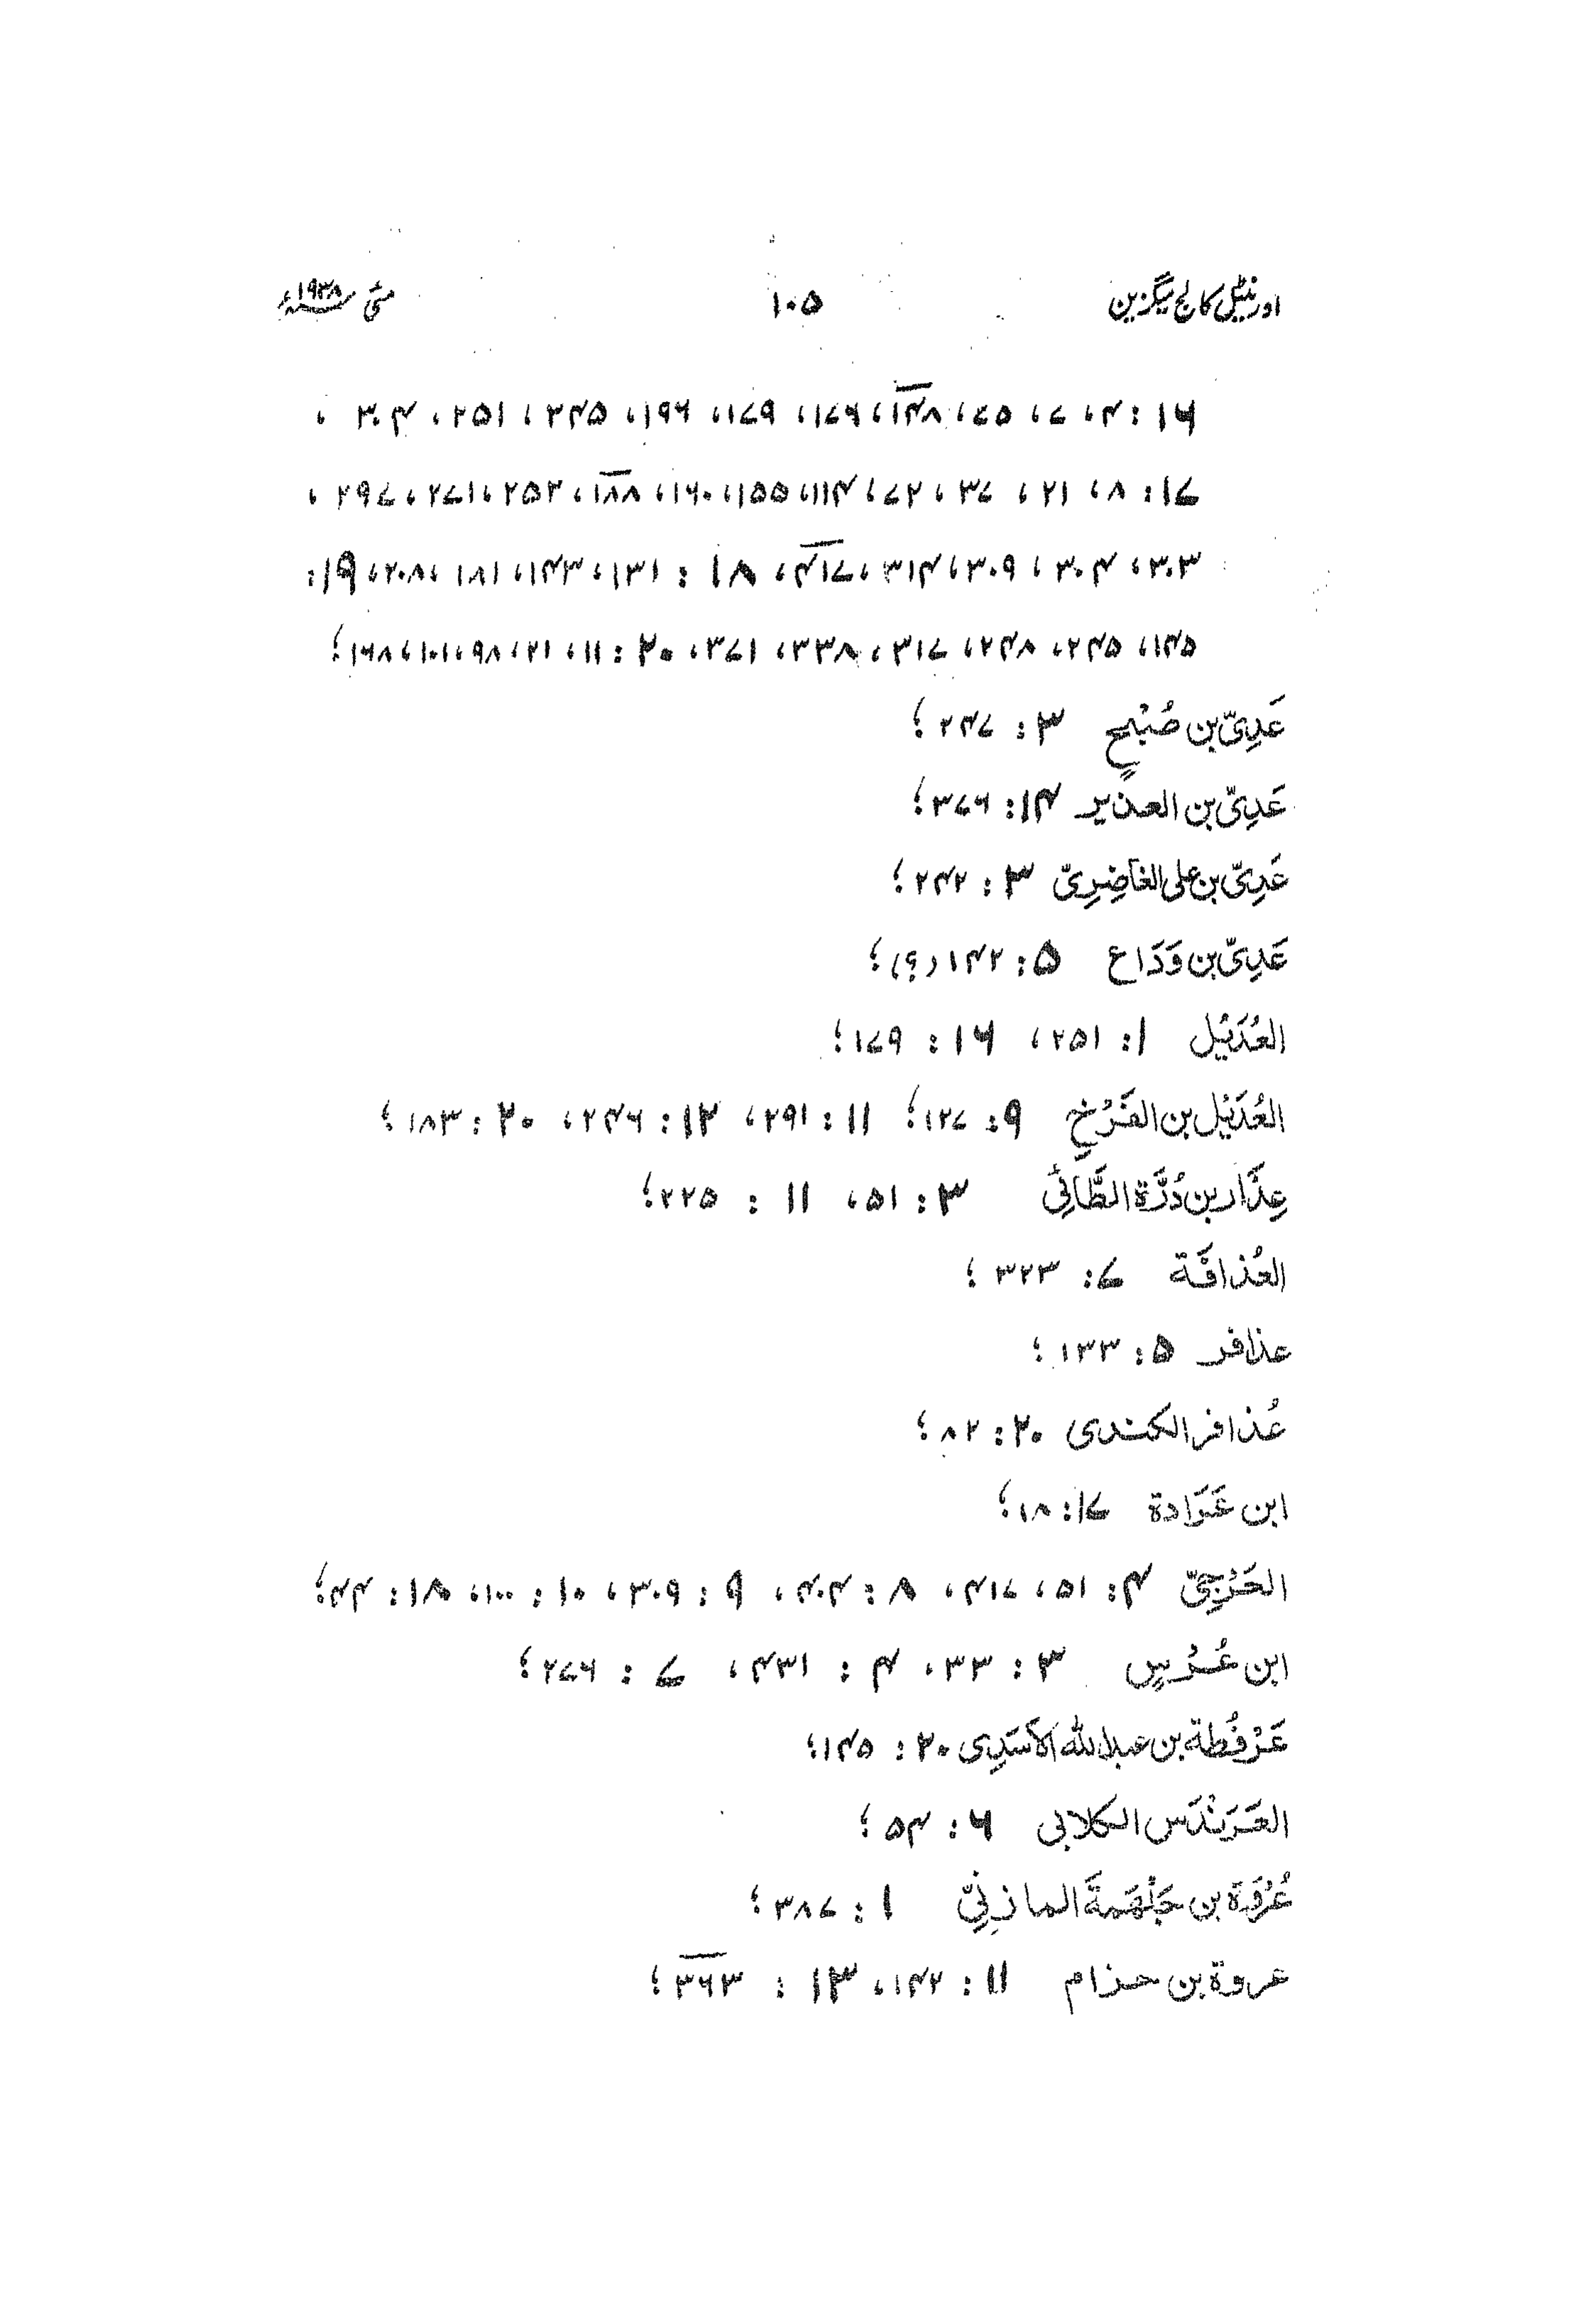 اورنٹیل کالج میگزین ۱۰۵ مئی سنہ ۱۹۳۸ء
۱۶: ۴، ۷، ۷۵، ۱۴۸، ۱۷۶، ۱۷۹، ۱۹۶، ۲۴۵، ۲۵۱، ۳۰۴،
۱۷: ۸، ۲۱، ۳۷، ۷۲، ۱۱۴، ۱۵۵، ۱۶۰، ۱۸۸، ۲۵۲، ۲۷۱، ۲۹۷،
۳۰۳، ۳۰۴، ۳۰۹، ۳۱۴، ۴۱۷، ۱۸: ۱۳۱، ۱۴۳، ۱۸۱، ۲۰۸، ۱۹:
۱۴۵، ۲۴۵، ۲۴۸، ۳۱۷، ۳۳۸، ۳۷۱، ۲۰: ۱۱، ۲۱، ۹۸، ۱۰۱، ۱۶۸؛
عَدِیّ بن صُبْحٍ ۳: ۲۴۷؛
عَدِیّ بن العذیر ۱۴: ۳۷۶؛
عَدِیّ بن علی الغاضِرِیّ ۳: ۲۴۲؛
عَدِیّ بن وَدَاع ۵: ۱۴۲ (؟)؛
العُدَیْل ۱: ۲۵۱، ۱۶: ۱۷۹؛
العُدَیْل بن الفَرْخِ ۹: ۱۲۷؛ ۱۱: ۲۹۱، ۱۲: ۲۴۶، ۲۰: ۱۸۳؛
عِذَار بن دُرَّة الطَّائِیّ ۳: ۵۱، ۱۱: ۲۲۵؛
العُذافَة ۷: ۳۲۳؛
عذافر ۵: ۱۳۳؛
عُذافر الکندی ۲۰: ۸۲؛
ابن عَرَادة ۱۷: ۱۸؛
العَرْجِیّ ۴: ۵۱، ۴۱۷، ۸: ۴۰۴، ۹: ۳۰۹، ۱۰: ۱۰۰، ۱۸: ۴۴؛
ابن عُرْسٍ ۳: ۳۳، ۴: ۴۳۱، ۷: ۲۷۶؛
عَرْفُطة بن عبد الله الأسَدِی ۲۰: ۱۴۵؛
العَرَنْدَس الکلابی ۶: ۵۴؛
عُرْوَة بن جَلْهَمَةَ المازِنِیّ ۱: ۳۸۷؛
عروة بن حزام ۱۱: ۱۴۲، ۱۳: ۳۶۳؛